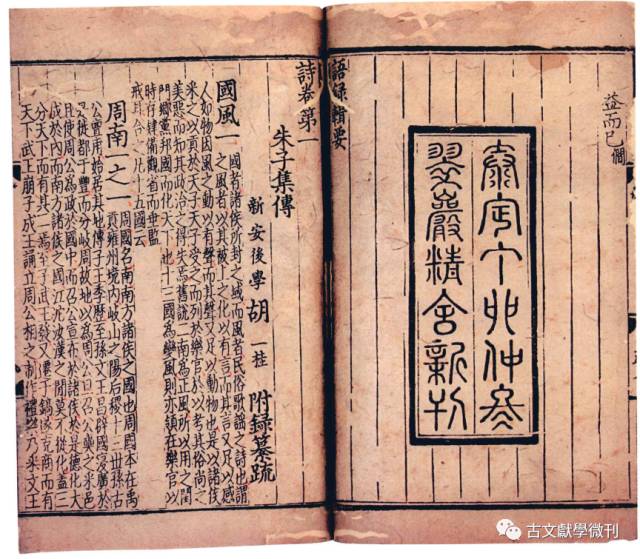 益而已
泰定丁卯仲冬
翠巖精舍新刊
語録輯要
詩卷第一
朱子集傳
新安後學 胡 一桂 附録纂疏
國風一
國者諸侯所封之域而風者民俗歌謡之詩也謂
之風者以其被上之化以有言而其言又足以感
人如物因風之動以有聲而其聲又足以動物也是以諸侯
采之以貢於天子天子受之而列於樂官於以考其俗尚之
美惡而知其政治之得失焉舊説二南為正風所以用之閨
門鄉黨邦國而化天下也十三國為變風則亦領在樂官以
時存肄備觀省而垂監
戒耳合之凡十五國云
周南一之一
周國名南南方諸侯之國也周國本在禹
貢雍州境内岐山之陽后稷十三世孫古
公亶甫始居其地傳子王季歷至孫文王昌辟國寖廣於
是徙都于豐而分岐周故地以為周公旦召公奭之采邑
且使周公為政於國中而召公宣布於諸侯於是德化大
成於内而南方諸侯之國江沱汝漢之間莫不從化蓋三
分天下而有其二焉至子武王發又遷于鎬遂克商而有
天下武王崩子成王誦立周公相之制作禮樂乃采文王
古文獻學微刊